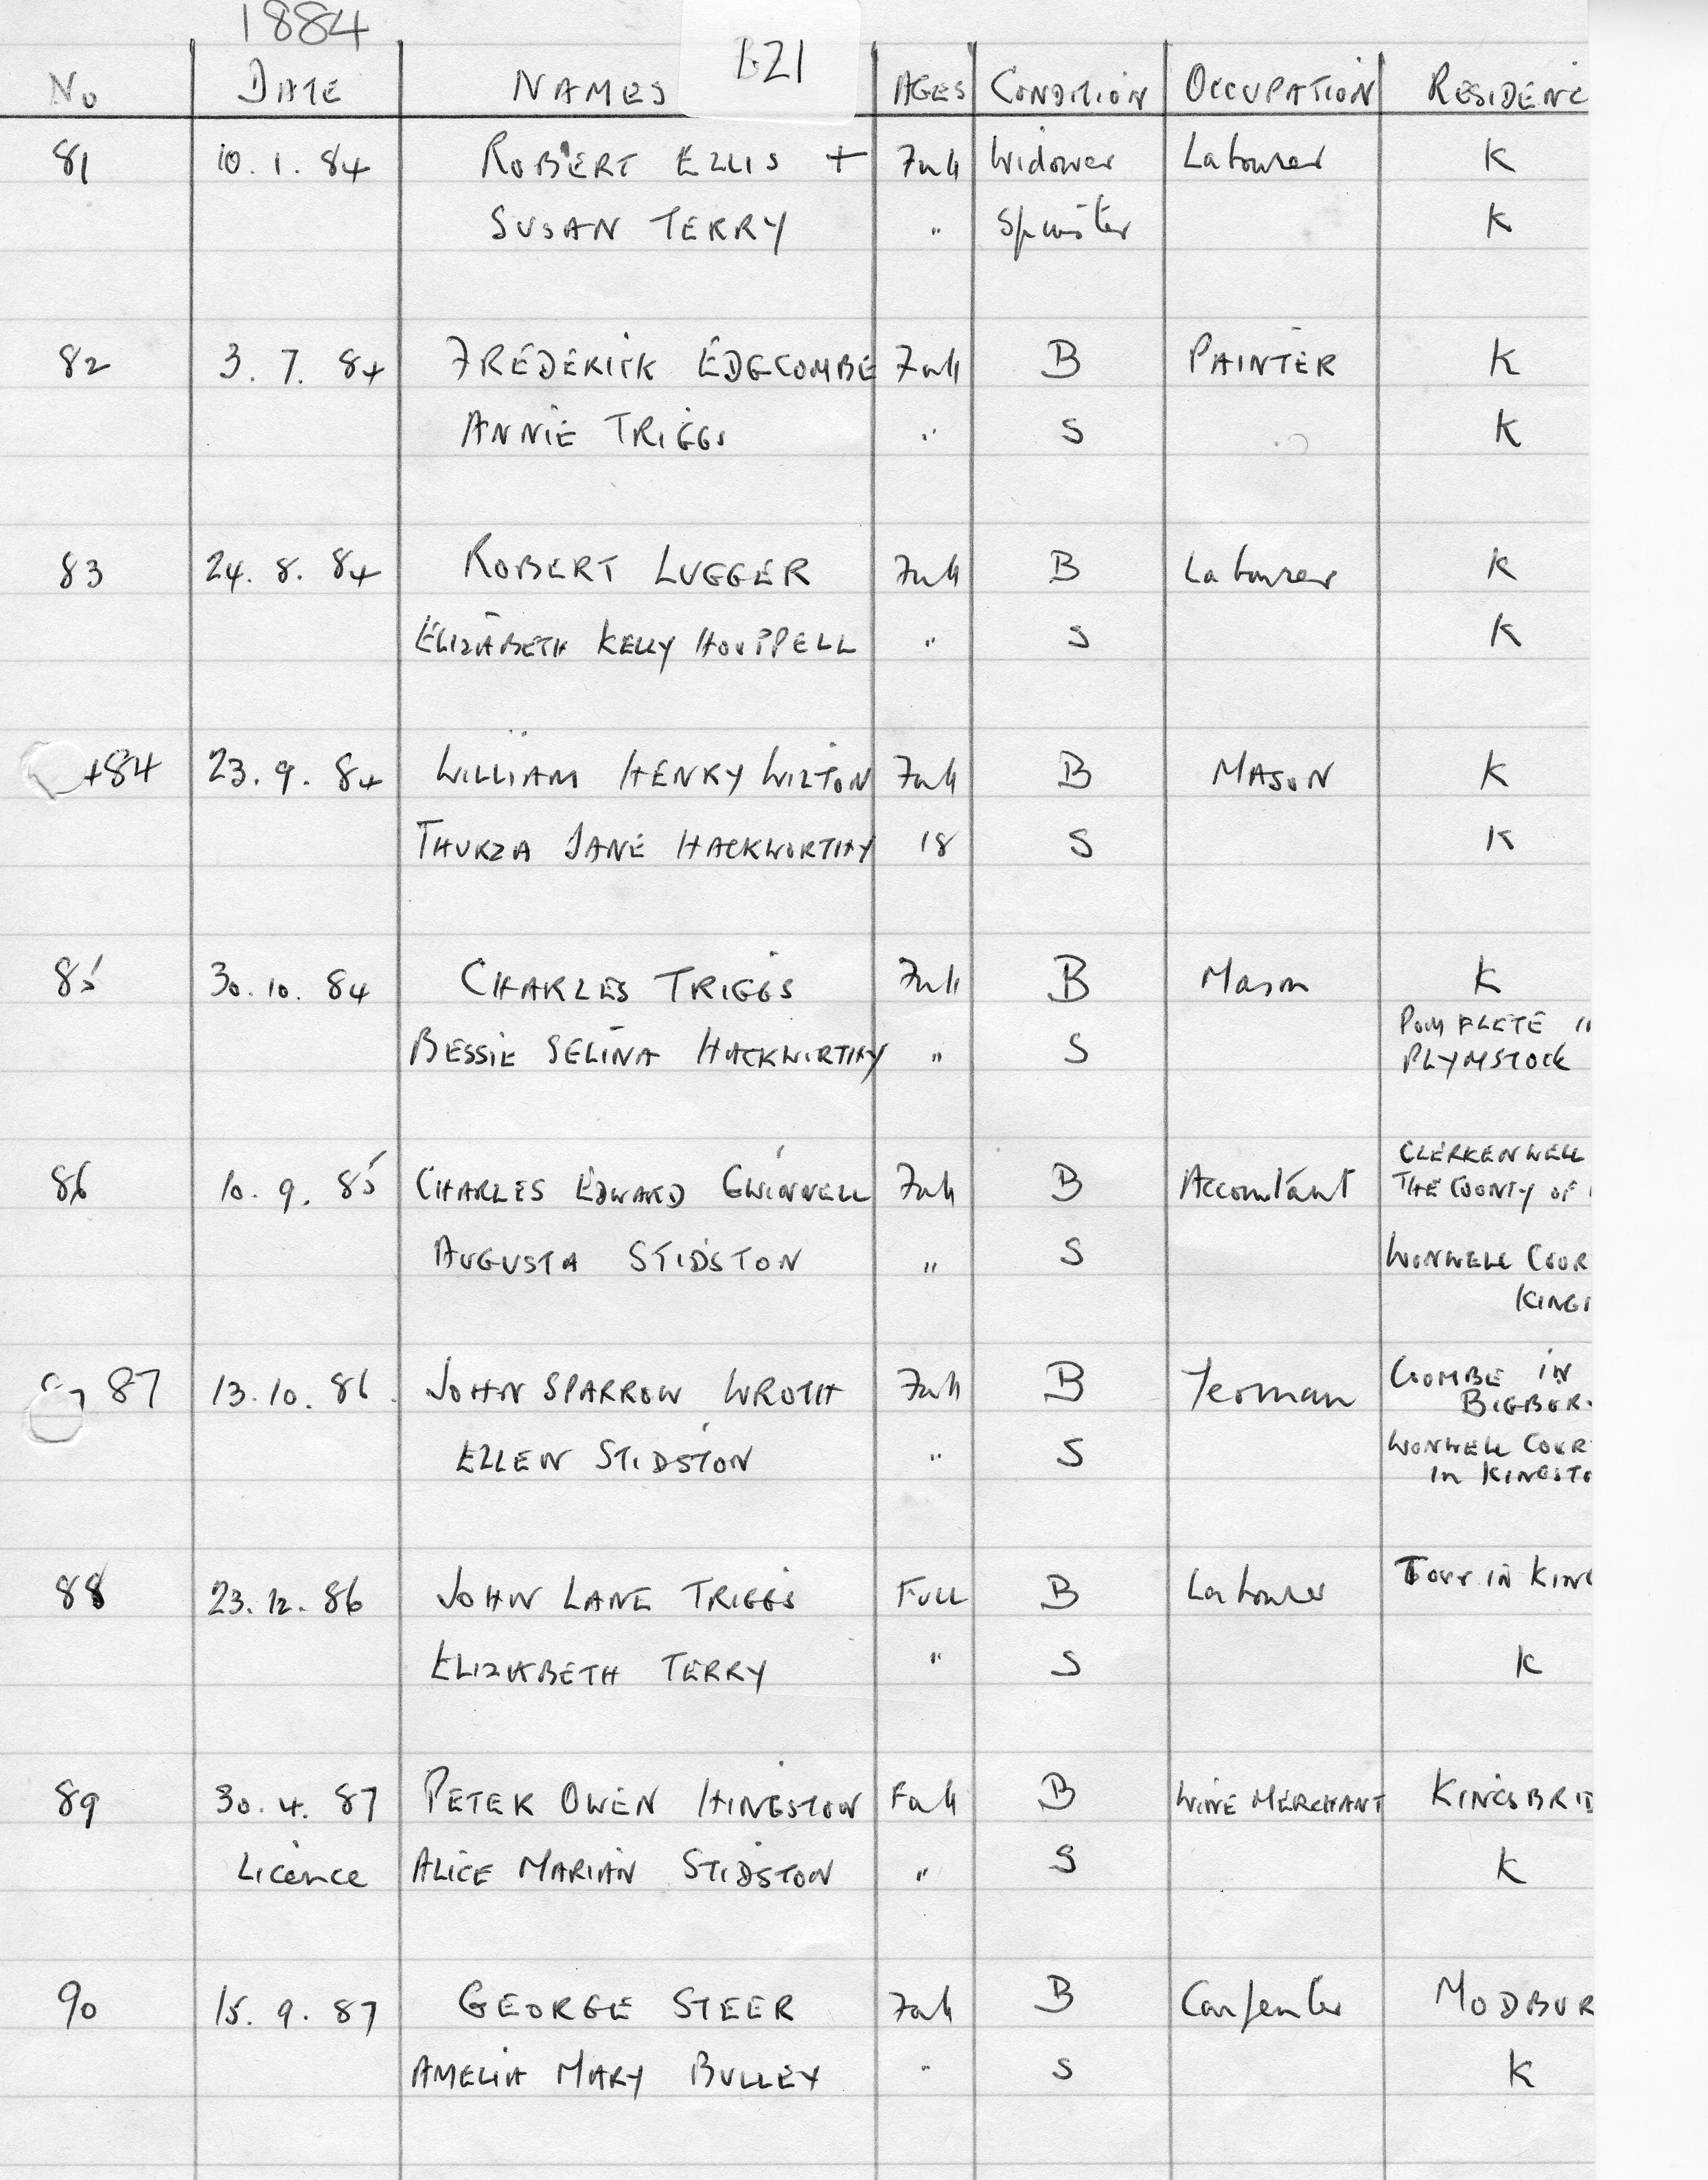 1884
B21
No DATE NAMES AGES CONDITION OCCUPATION RESIDENC
81 10.1.84 ROBERT ELLIS + Full Widower Labourer K
SUSAN TERRY " Spinster K
82 3.7.84 FREDERICK EDGCOMBE Full B PAINTER K
ANNIE TRIGGS " S K
83 24.8.84 ROBERT LUGGER Full B Labourer K
ELIZABETH KELLY HOUPPELL " S K
+84 23.9.84 WILLIAM HENRY WILTON Full B MASON K
THURZA JANE HACKWORTHY 18 S K
85 30.10.84 CHARLES TRIGGS Full B Mason K
BESSIE SELINA HACKWORTHY " S POMFLETE
PLYMSTOCK
CLERKENWELL
86 10.9.85 CHARLES EDWARD GWINNELL Full B Accountant THE COUNTY OF
AUGUSTA STIDSTON " S WONWELL COUR
KINGS
87 13.10.86 JOHN SPARROW WROTH Full B Yeoman COOMBE IN
BIGBUR
ELLEN STIDSTON " S WONWELL COUR
in KINGSTO
88 23.12.86 JOHN LANE TRIGGS FULL B Labourer TORR IN KING
ELIZABETH TERRY " S K
89 30.4.87 PETER OWEN HINGSTON Full B WINE MERCHANT KINGSBRID
Licence ALICE MARIAN STIDSTON " S K
90 15.9.87 GEORGE STEER Full B Carpenter MODBUR
AMELIA MARY BULLEY " S K